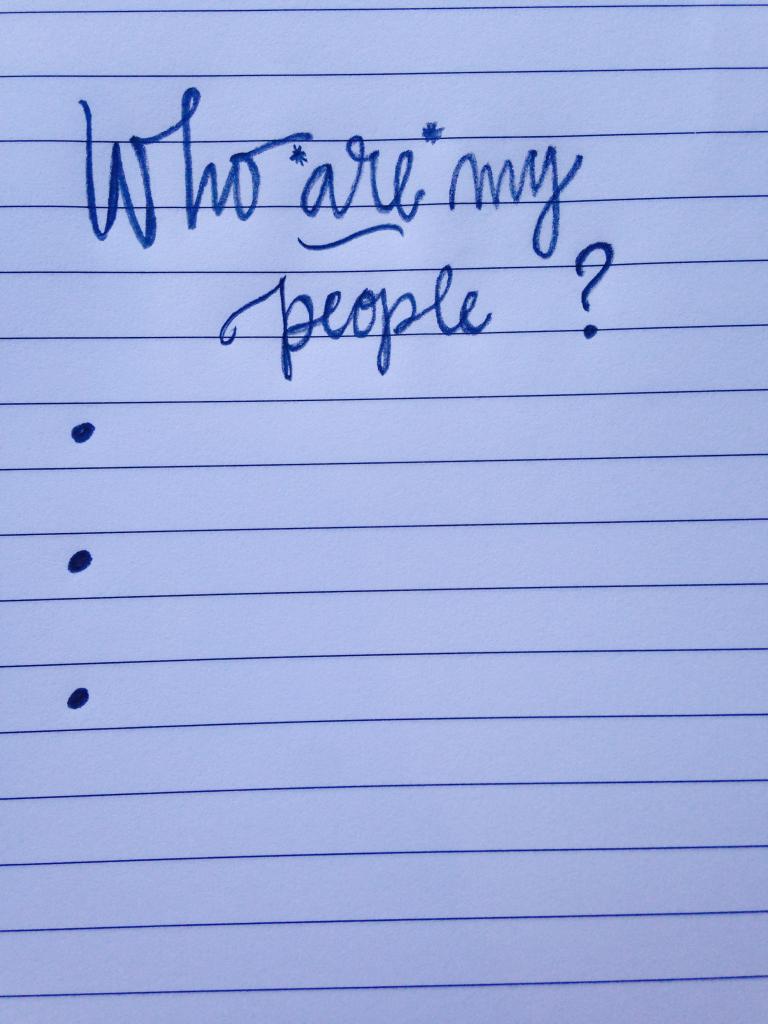 Who *are* my
people ?
•
•
•